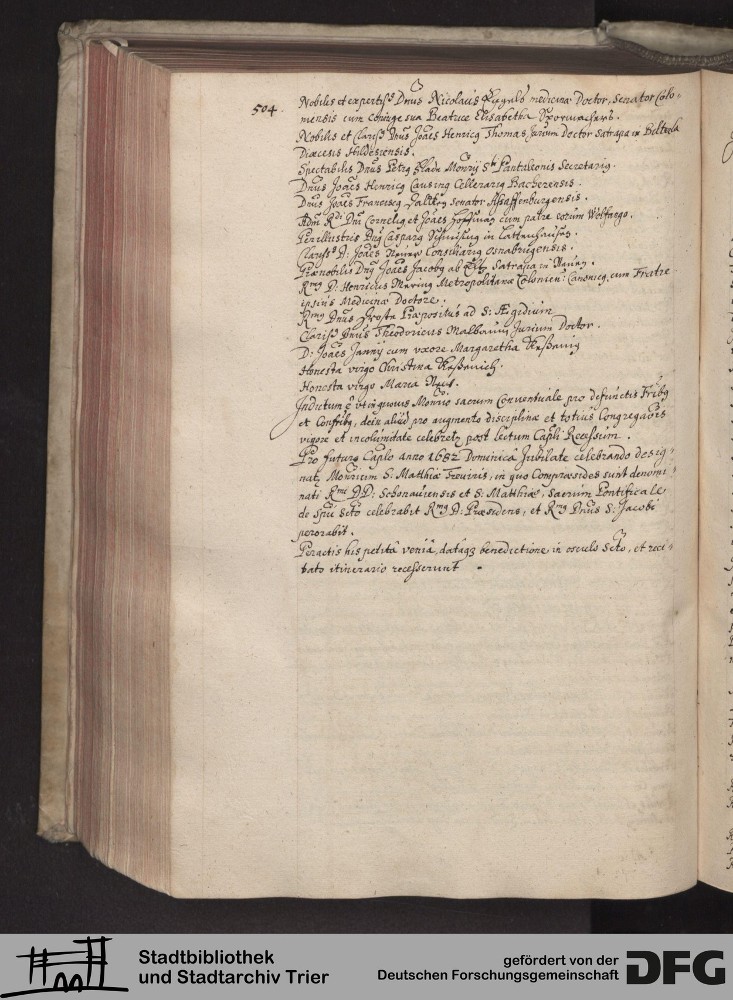 504.
Nobilis et expertiss. Dnus Nicolaus medicinæ Doctor, Senator Colo-
niensis cum coniuge sua Beatrice Elisabetha
Nobilis et Clariss. Dnus Joaes Henricq Thomas Jurium Doctor Satrapa in
Diœcesis Hildesiensis.
Spectabilis Dnus Petrq Monrij Sti Pantaleonis Secretariq.
Dnus Joaes Henricq Causinq Cellerariq Bacherensis.
Dnus Joaes Franciscq Senator Assaffenburgensis.
Adm Rdi Dni Corneliq et Joaes Hoffman cum patre eorum Wolfango.
Perillustris Dnq Casparq in
Clariss. D: Joaes Consiliariq Osnabrugensis.
Prænobilis Dnq Joaes Jacobq ab Satrapa in
Rmq D: Henricus Mering Metropolitanæ Colonien: Canonicq, cum Fratre
ipsius Medicinæ Doctore.
Rmq Dnus Præpositus ad S: Ægidium
Clariss Dnus Theodoricus Jurium Doctor.
D: Joaes cum vxore Margaretha
Honesta virgo Christina
Honesta virgo Maria
Indictum ē vt in quouis Monrio sacrum Conuentuale pro defunctis Fribq
et Confribq, dein aliud pro augmento disciplinæ et totius Congregaois
vigore et incolumitate celebretq post lectum Capli Recessum.
Pro futuro Caplo anno 1682 Dominica Jubilate celebrando desig-
nat, Monrium S: Matthiæ Treuiris, in quo Compræsides sunt denomi-
nati Rmi DD: Schonauiensis et S: Matthiæ, sacrum Pontificale
de Spu Scto celebrabit Rmq D: Præsidens, et Rmq Dnus S: Jacobi
perorabit.
Peractis his petitâ veniâ, datâqз benedictione in osculo Scto, et reci-
tato itinerario recesserunt.
Stadtbibliothek
und Stadtarchiv Trier
gefördert von der
Deutschen Forschungsgemeinschaft
DFG